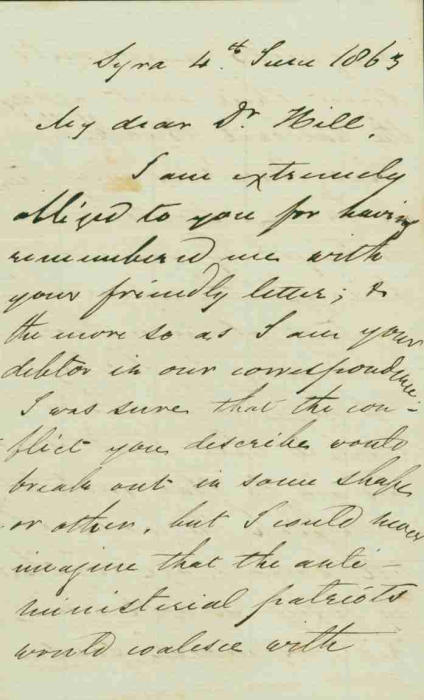 Syra 4th June 1863
My dear Dr Hill,
I am extremely
obliged to you for having
remembered me with
your friendly letter; &
the more so as I am your
debtor in our correspondence
I was sure that the con-
flict you describe would
break out in some shape
or other, but I could never
imagine that the anti-
ministerial patriots
would coalesce with